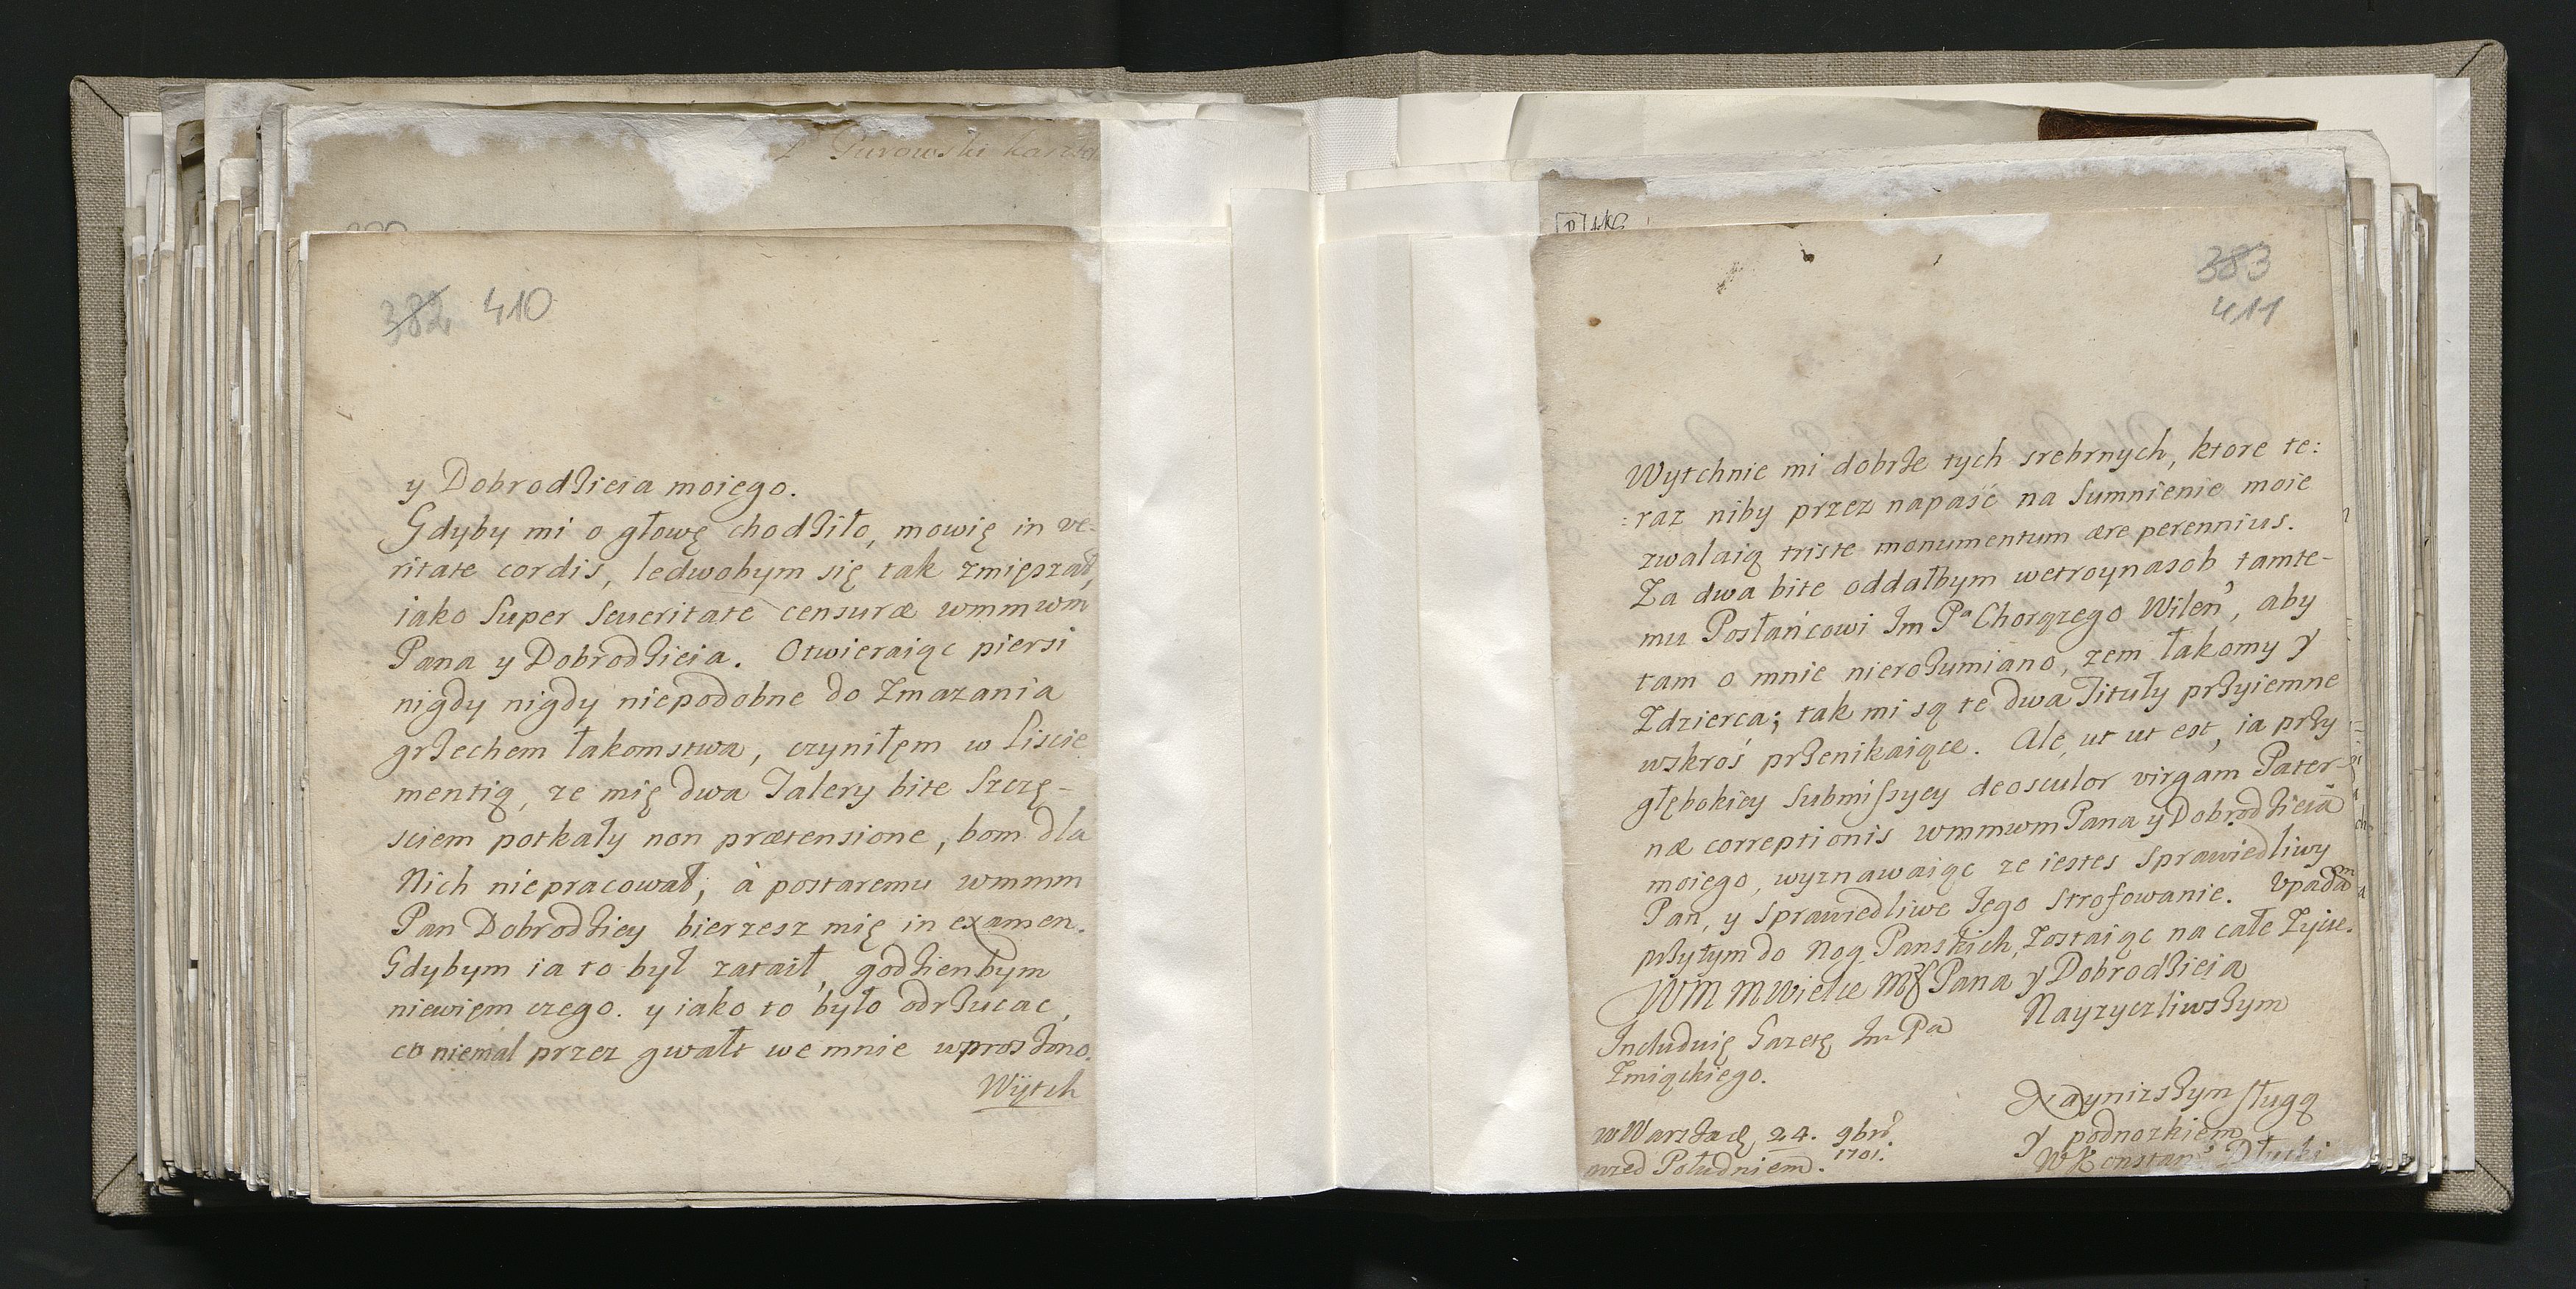 Purowski
382 410
y Dobrodzieia moiego.
Gdyby mi o głowę chodziło, mowię in ve-
ritate cordis, ledwobym się tak zmięszał,
iako super seueritate censuræ wmmwm
Pana y Dobrodzieia. Otwieraiąc piersi
nigdy nigdy niepodobne do zmazania
grzechem łakomstwa, czyniłęm w liscie
mentią, ze mię dwa Talery bite Szczę-
sciem potkały non prætensione, bom dla
Nich niepracował, à postaremu wmmm
Pan Dobrodziey bierzesz mię in examen.
Gdybym ia to był zataił, godzienbym
niewięm czego. y iako to było odrzucac,
co niemal przez gwałt we mnie wproszono.
Wÿtch
383
411
Wytchnie mi dobrze tych srebrnych, ktore te:
:raz niby przez napaść na Sumnienie moie
zwalaią triste monumentum ære perennius.
Za dwa bite oddałbym wetroynasob tamte-
mu Posłańcowi Im Pa Chorązego Wilen, aby
tam o mnie nierozumiano, zem łakomy y
Zdzierca; tak mi są te dwa Tituły przyiemne
wskroś przenikaiące. Ale, ut ut est, ia przy
głębokiey Submissyey deosculor virgam Pater-
næ correptionis wmmwm Pana y Dobrodzieia
moiego, wyznawaiąc ze iestes Sprawiedliwy
Pan, y Sprawiedliwe Iego Strofowanie. Vpadam
przytym do Nog Panskich, Zostaiąc na całe Zycie.
WM MWielce Mg Pana y Dobrodzieia
Nayzyczliwszym
Includuię Gazetę Im Pa
Zmiąckiego.
Naynizszym sługą
y podnozkiem
w Warszawę, 24. 9brs
1701.
przed Południem.
WKonstan Dłuski